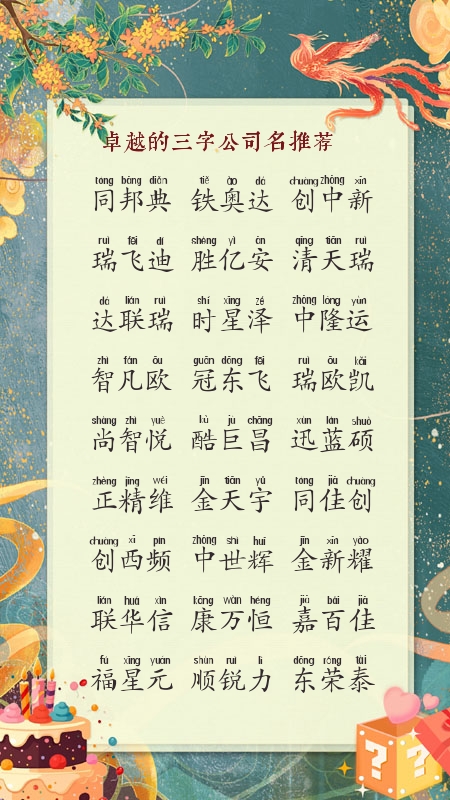 卓越的三字公司名推荐
tóng bāng diǎn tiě ào dá chuàng zhōng xīn
同邦典 铁奥达 创中新
ruì fēi dí shèng yì ān qīng tiān ruì
瑞飞迪 胜亿安 清天瑞
dá lián ruì shí xīng zé zhōng lóng yùn
达联瑞 时星泽 中隆运
zhì fán ōu guān dōng fēi ruì ōu kǎi
智凡欧 冠东飞 瑞欧凯
shàng zhì yuè kù jù chāng xùn lán shuò
尚智悦 酷巨昌 迅蓝硕
zhèng jīng wéi jīn tiān yǔ tóng jiā chuàng
正精维 金天宇 同佳创
chuàng xī pín zhōng shì huī jīn xīn yào
创西频 中世辉 金新耀
lián huá xìn kāng wàn héng jiā bǎi jiā
联华信 康万恒 嘉百佳
fú xīng yuán shùn ruì lì dōng róng tài
福星元 顺锐力 东荣泰
? ?